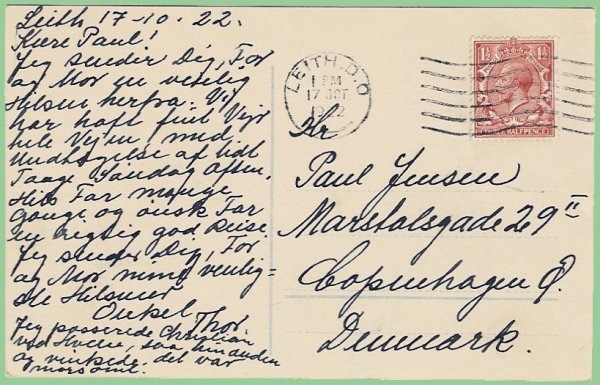 Leith 17-10-22.
Kære Paul!
Jeg sender Dig, Far
og Mor en venlig
Hilsen herfra. Vi
har haft fint Vejr
hele Vejen, med
Undtagelse af lidt
Taage Søndag Aften.
Hils Far mange
Gange og ønsk Far
en rigtig god Reise.
Jeg sender Dig, Far
og Mor mine venlig-
ste Hilsner
Onkel Thor
Jeg passerede Christian
ved Hveen, saa hinanden
og vinkede. det var
morsomt.
LEITH. D.O
1 PM
17 OCT
1922
1½ 1½
THREE HALFPENCE
Hr
Paul Jensen
Marstalsgade 29 II
Copenhagen Ø.
Denmark.